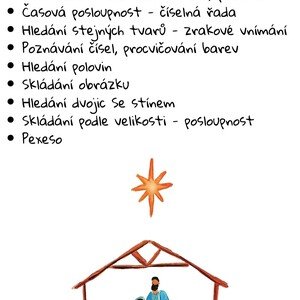 • Časová posloupnost - číselná řada
• Hledání stejných tvarů - zrakové vnímání
• Poznávání čísel, procvičování barev
• Hledání polovin
• Skládání obrázku
• Hledání dvojic Se stínem
• Skládání podle velikosti - posloupnost
• Pexeso